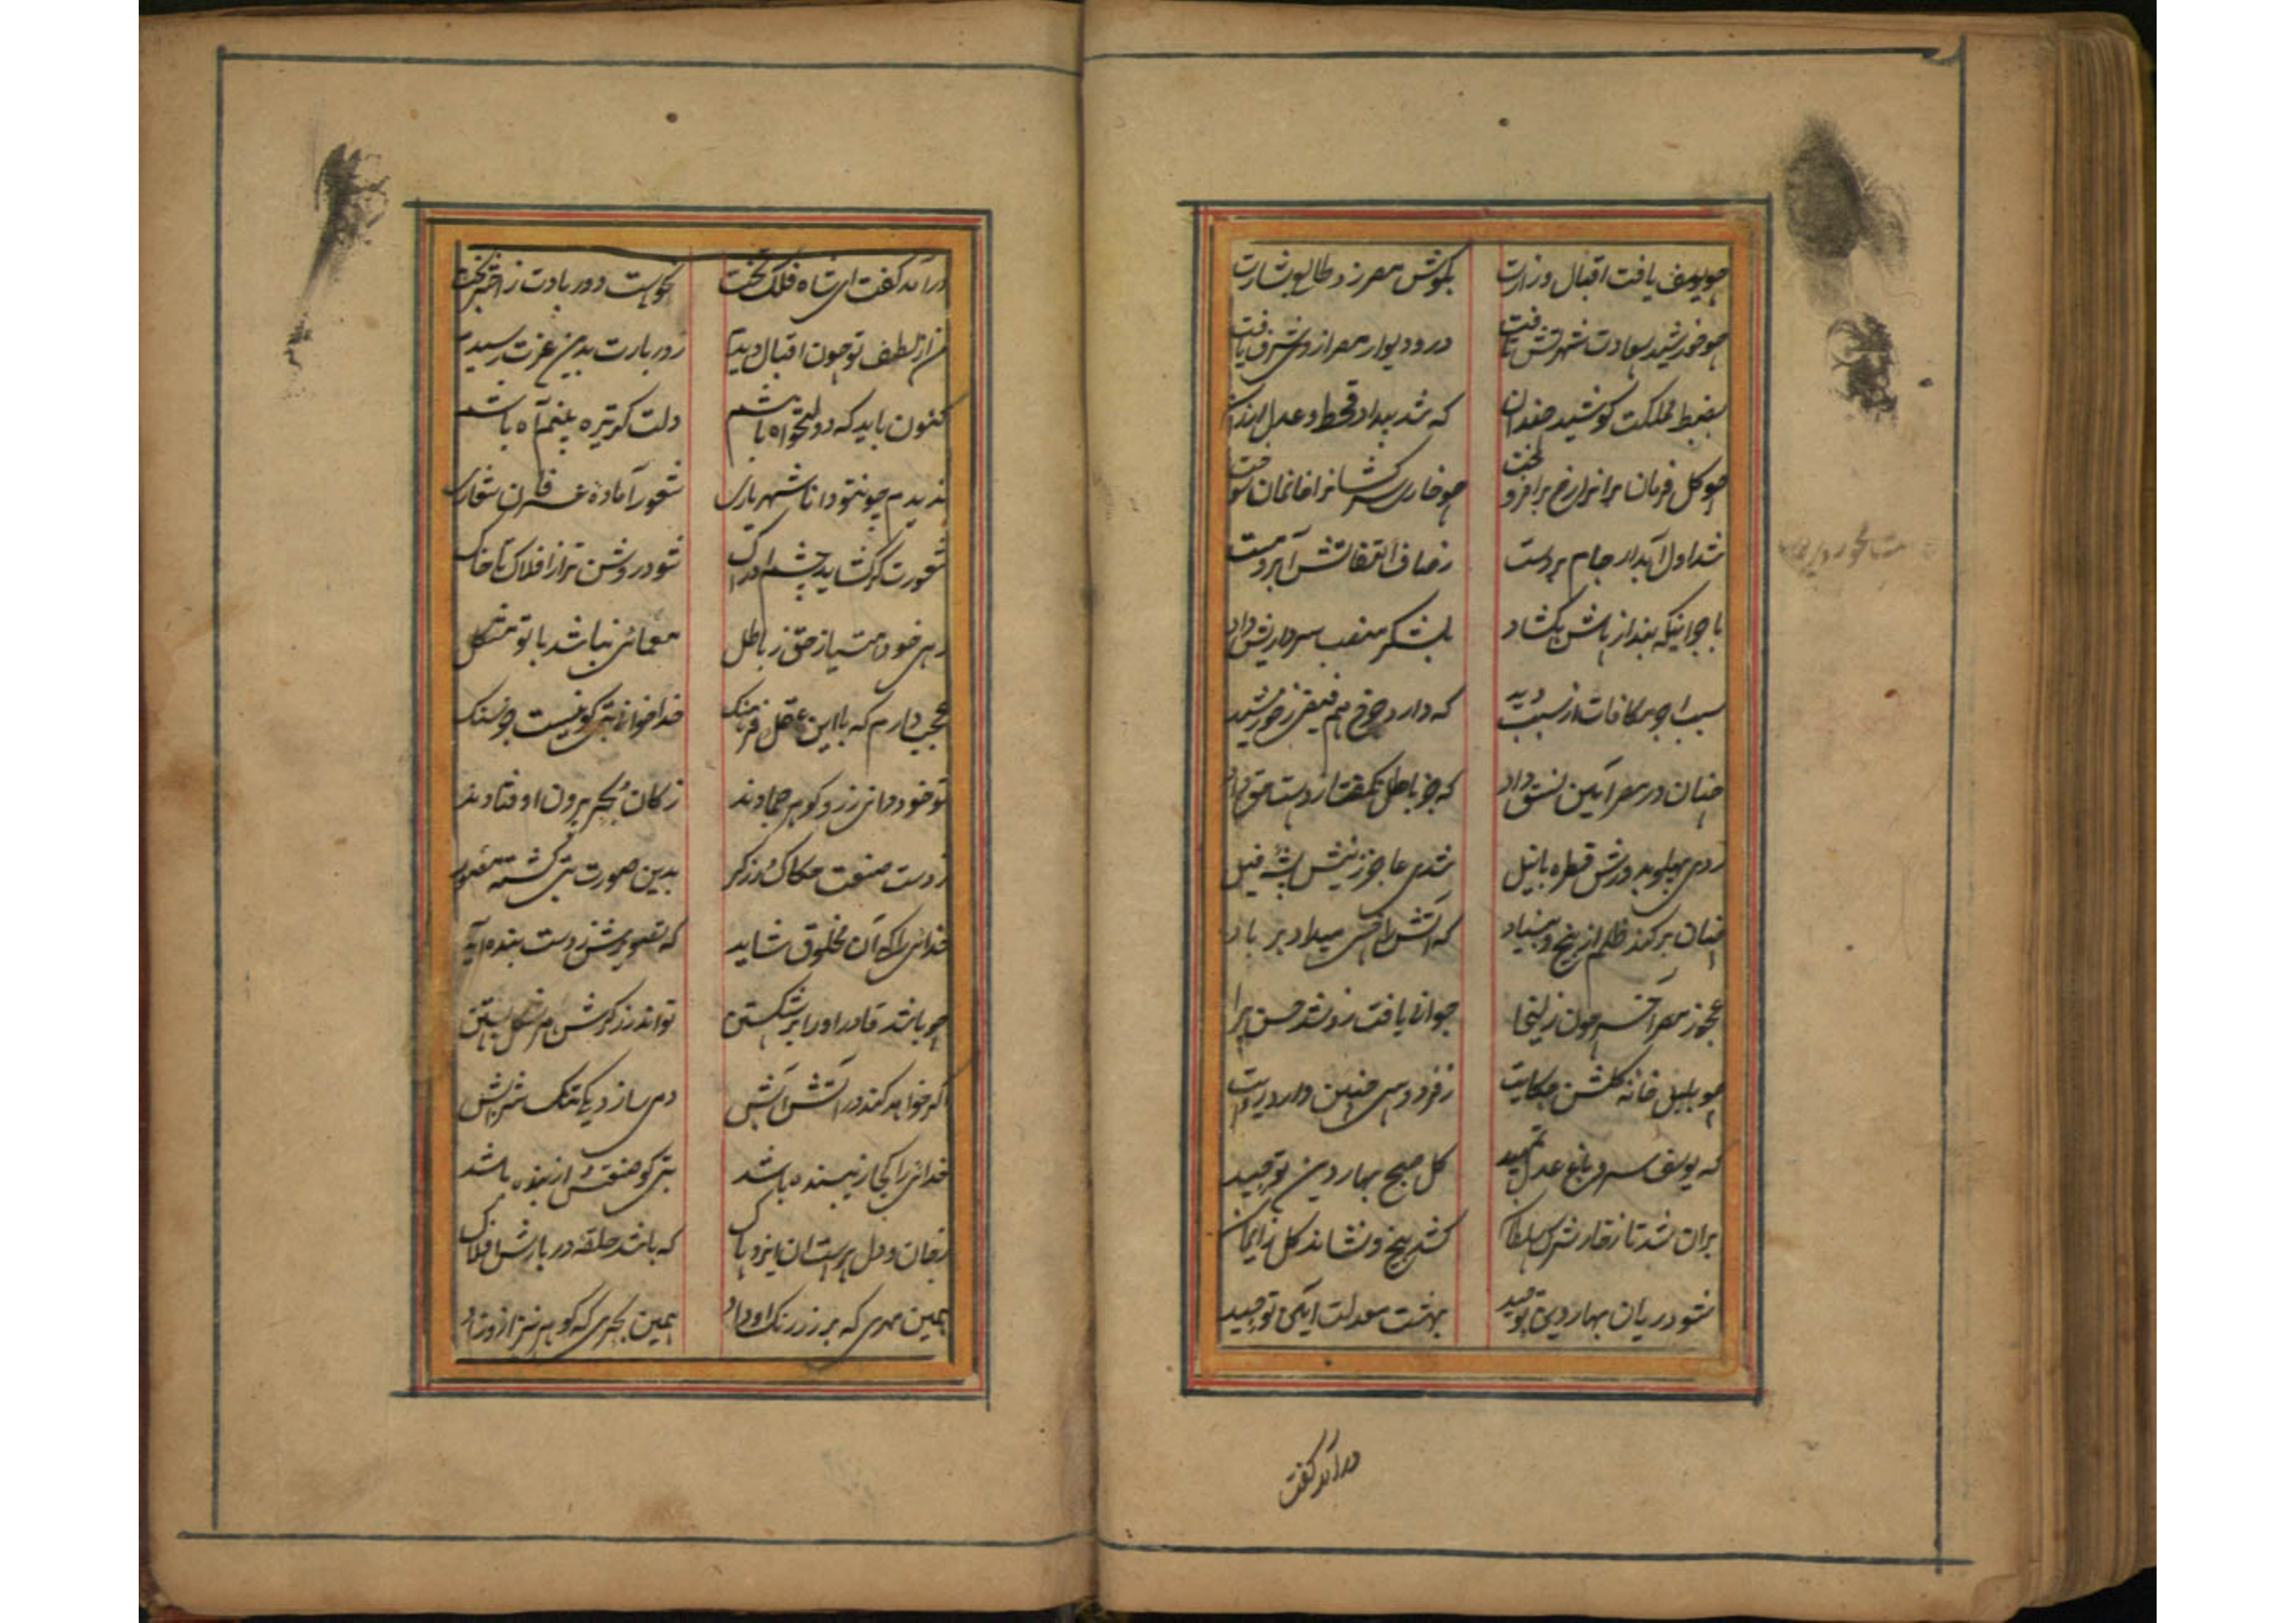 چو یوسف یافت اقبال وزارت بکوش مصر زد طالع بشارت
چو خورشید سعادت شهرتش تافت در و دیوار مصر از وی شرف یافت
بضبط مملکت کوشید چندان که شد بیداد قحط و عدل ارزان
چو کل فرمان برانرا رخ برافروخت چو خار سرکشانرا خانمان سوخت
شد اول آبدار جام بر دست ز صاف التفاتش آبرو مست
باجوانیکه بند از پاش بکشاد بلشکر منصب سرداریش داد
سبب را چو مکافات از سبب دید که دارد چرخ هم فیض ز خورشید
چنان در مصر آیین نسق داد که جز باطل نکفتا ز دست حق داد
زدی پهلو بدورش قطره با نیل شدی عاجز ز نیش پشه فیل
چنان برکند ظلم از بیخ و بنیاد که آتش را خس میداد بر باد
عجوز مصر آخر چون زلیخا جوانی یافت زو شد حسن پیرا
چو بلبل خانه کلشن حکایت ز فردوسی چنین دارد روایت
که یوسف سرو باغ عدل تمهید کل صبح بهار دین توحید
بران شد تا ز خار شرک سلطان کشد بیخ و نشاند کل ز ایمان
شود ریان بهار دین توحید بهشت معدلت آیین توحید
درآمد کفت
درآمد کفت ای شاه فلک تخت نحوست دور بادت ز اختر بخت
من از لطف تو چون اقبال دیدم ز دربارت بدین عزت رسیدم
کنون باید که دولتخواه باشم دلت کر تیره بینم آه باشم
ندیدم چونتو دانا شهریاری شعور آماده عرفان شعاری
شعورت کر کشاید چشم ادراک شود روشن تر از افلاک تا خاک
دهی خود امتیاز حق ز باطل معمائی نباشد با تو مشکل
عجب دارم که با این عقل و فرهنک خدا خوانی بتی کو نیست جز سنک
تو خود دانی زر و کوهر جمادند ز کان و بحر بیرون اوفتادند
ز دست صنعت حکاک و زرکر بدین صورت بتی کشته مصور
خدائی را که آن مخلوق شاید که تصویرش ز دست بنده آید
چو باشد قادر او را بر شکستن تواند زرکرش هم شکل بستن
اکر خواهد کند در آتش آبش دمی سازد بیک تنک شرابش
خدائی را کجا زیبنده باشد بتی کو صنعتش از بنده باشد
ز جان و دل پرست آن ایزد پاک که باشد حلقه دربارش افلاک
همین مهری که بر زر رنک او داد همین بحری که کوهر نیز ازو زاد